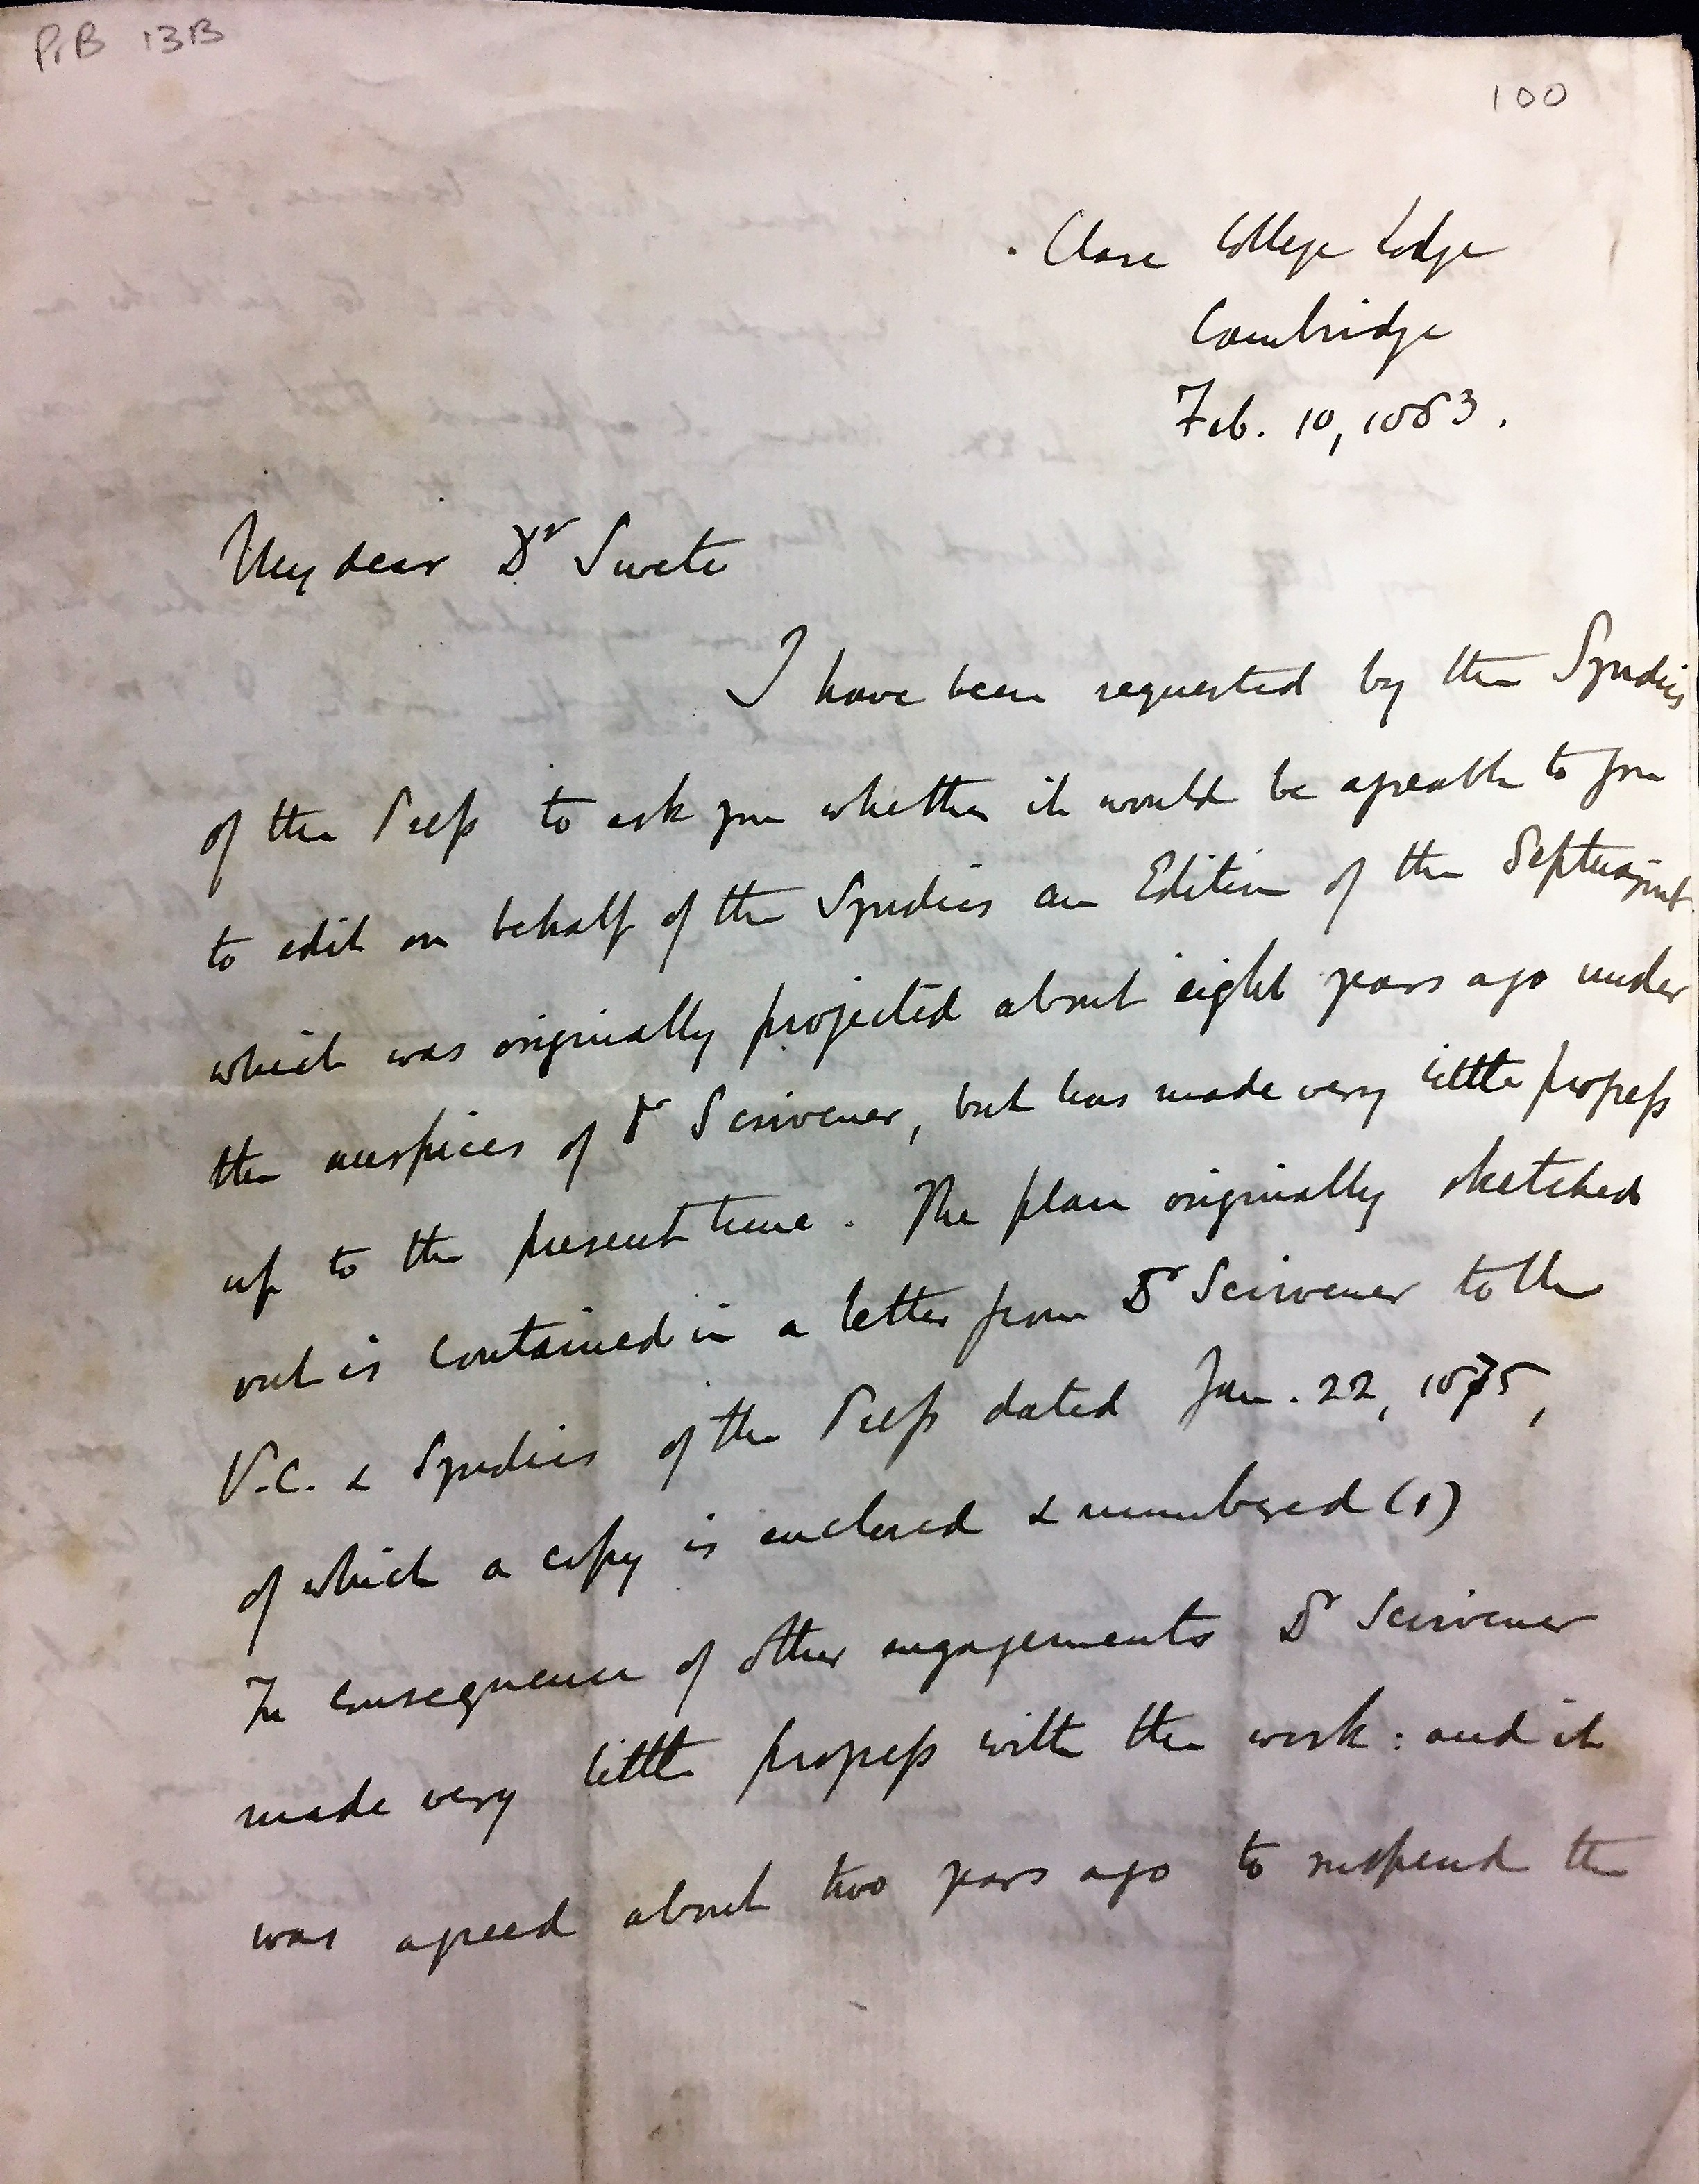 PrB 13B
100
Clare College Lodge
Cambridge
Feb. 10, 1883.
My dear Dr Swete
I have been requested by the Syndics
of the Press to ask you whether it would be agreable to you
to edit on behalf of the Syndics an Edition of the Septuagint
which was originally projected about eight years ago under
the auspices of Dr Scrivener, but has made very little progress
up to the present time. The plan originally sketched
out is contained in a letter from Dr Scrivener to the
V.C. & Syndics of the Press dated Jan. 22, 1875,
of which a copy is enclosed & numbered (1)
In consequence of other engagements Dr Scrivener
made very little progress with the work: and it
was agreed about two years ago to suspend the